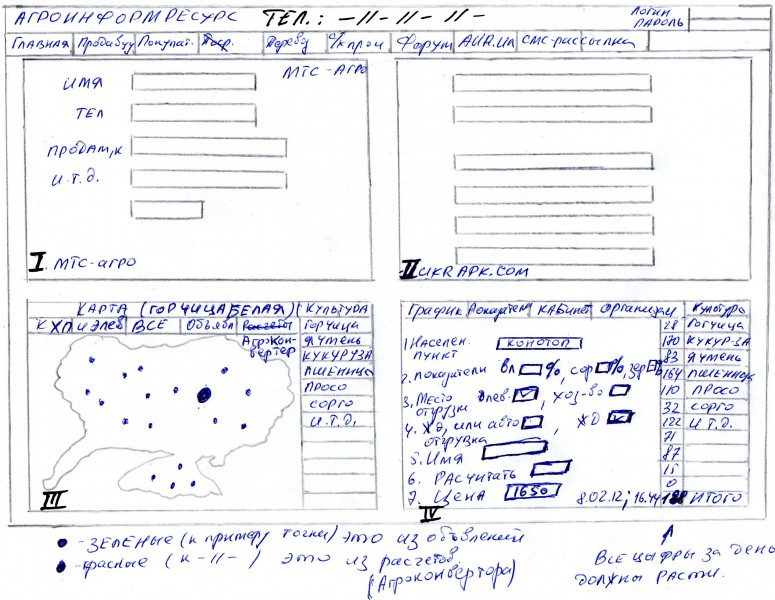 АГРОИНФОРМРЕСУРС ТЕЛ.: –11–11–11–
ЛОГИН
ПАРОЛЬ
ГЛАВНАЯ Продавцу Покупат. Перевоз с/х прои Форум AUR.UA СМС-рассылка
МТС-АГРО
ИМЯ
ТЕЛ
ПРОДАМ, К
И.Т.Д.
I. МТС-агро
II UKRAPK.COM
КАРТА (ГОРЧИЦА БЕЛАЯ) КУЛЬТУРА
К ХП и Элев ВСЕ Объявл Расчеты ГОРЧИЦА
АгроКон-
вертер
ЯЧМЕНЬ
КУКУРУЗА
ПШЕНИЦА
ПРОСО
СОРГО
И.Т.Д.
III
График Показатели КАБИНЕТ Организац Культура
28 ГОРЧИЦА
1 Населен. пункт КОНОТОП 170 КУКУР-ЗА
83 ЯЧМЕНЬ
2. показатели вл %, сор %, зер 164 ПШЕНИЦА
3. Место отгрузки элев. , хоз-во 110 ПРОСО
32 СОРГО
4. ЖД, или авто , ЖД 122 И.Т.Д.
отгрузка 71
5. Имя 87
6. РАСЧИТАТЬ 15
0
7. ЦЕНА 1650 8.02.12; 16.44 ИТОГО
IV
- ЗЕЛЕНЫЕ (к примеру точки) это из объявлений
- красные (к –11– ) это из расчетов
(Агроконвертора)
ВСЕ ЦЫФРЫ ЗА ДЕНЬ
ДОЛЖНЫ РАСТИ.